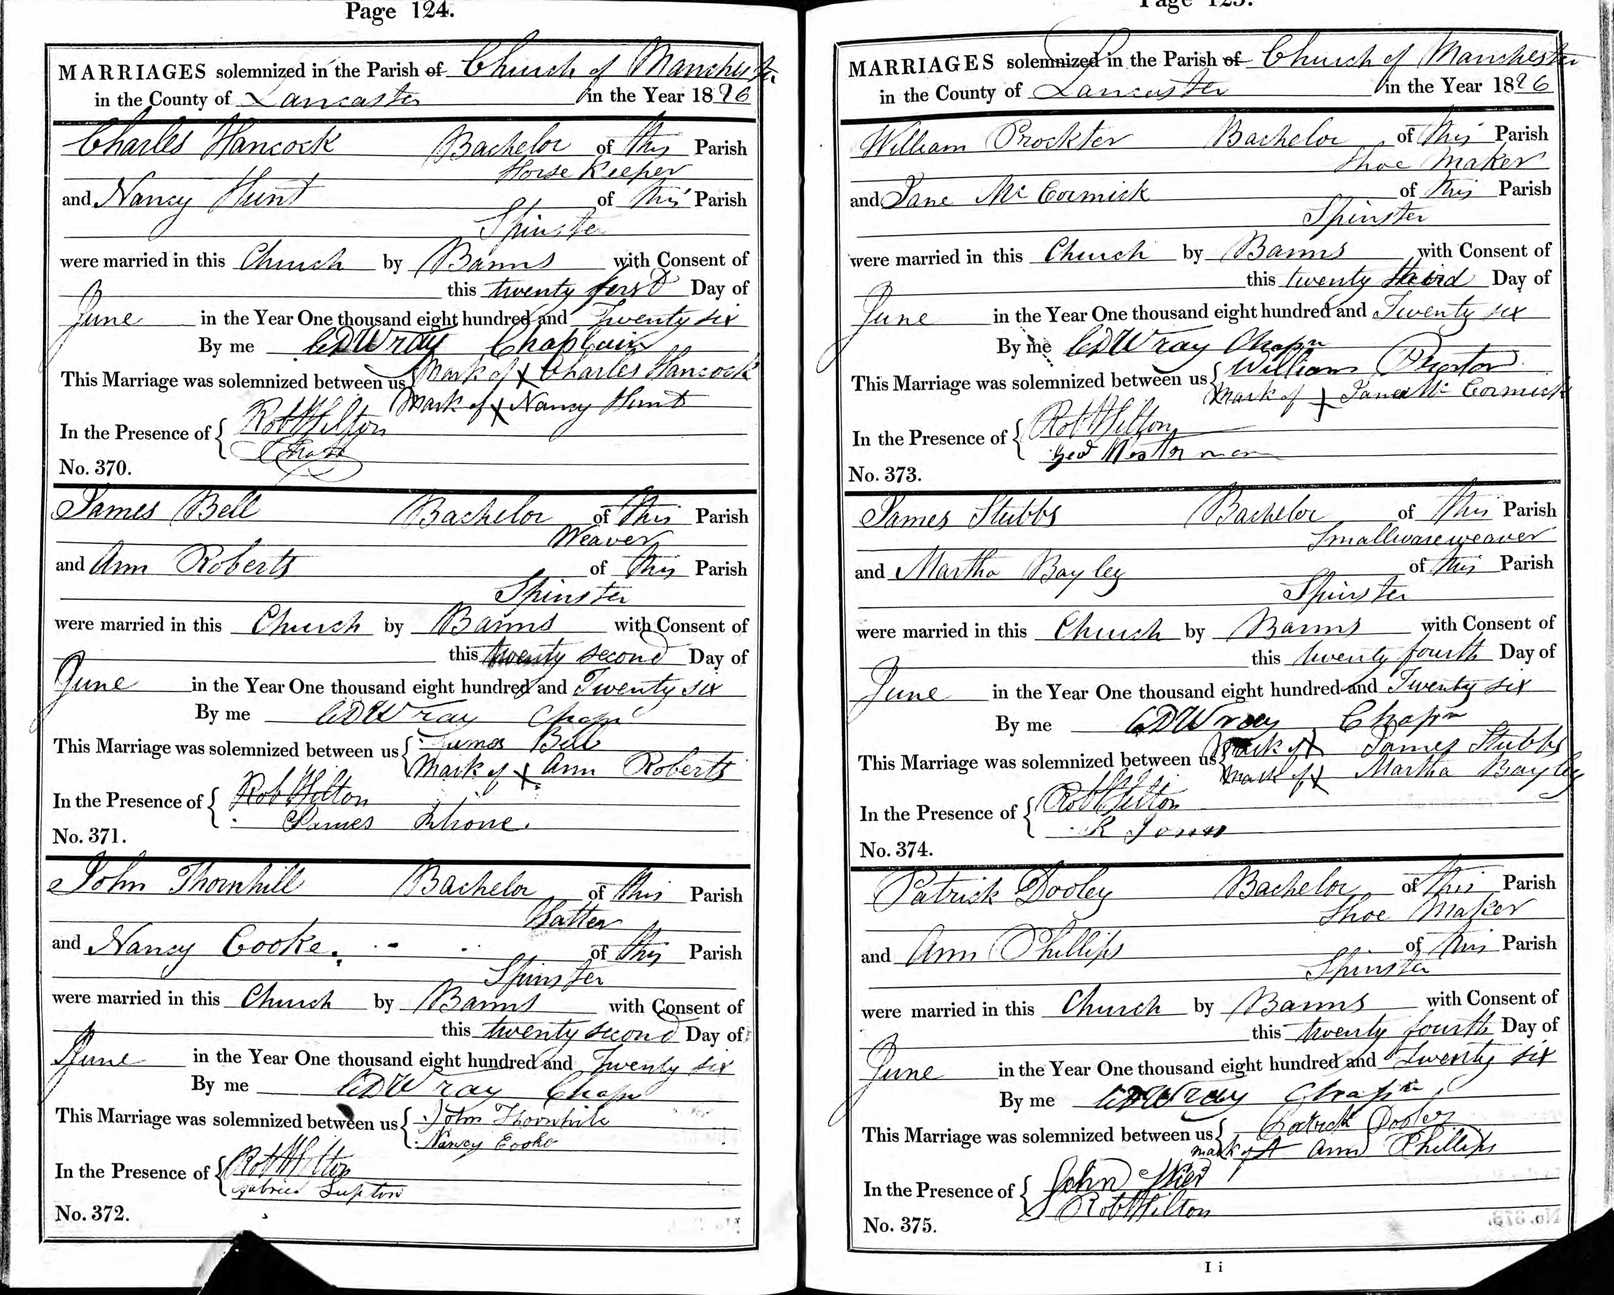 Page 124.
MARRIAGES solemnized in the Parish of Church of Manchester
in the County of Lancaster in the Year 1826
Charles Hancock Bachelor of this Parish
Horse Keeper
and Nancy Hunt of this Parish
Spinster
were married in this Church by Banns with Consent of
this twenty first Day of
June in the Year One thousand eight hundred and Twenty six
By me CDWray Chaplain
This Marriage was solemnized between us Mark of X Charles Hancock
Mark of X Nancy Hunt
In the Presence of Rob Wilton
No. 370.
James Bell Bachelor of this Parish
Weaver
and Ann Roberts of this Parish
Spinster
were married in this Church by Banns with Consent of
this twenty second Day of
June in the Year One thousand eight hundred and Twenty six
By me CDWray Chapn
This Marriage was solemnized between us James Bell
Mark of X Ann Roberts
In the Presence of Rob Wilton
James
No. 371.
John Thornhill Bachelor of this Parish
Hatter
and Nancy Cooke of this Parish
Spinster
were married in this Church by Banns with Consent of
this twenty second Day of
June in the Year One thousand eight hundred and Twenty six
By me CDWray Chapn
This Marriage was solemnized between us John Thornhill
Nancy Cooke
In the Presence of Rob Wilton
Gabriel Lupton
No. 372.
Page 125.
MARRIAGES solemnized in the Parish of Church of Manchester
in the County of Lancaster in the Year 1826
William Prockter Bachelor of this Parish
Shoe Maker
and Jane Mc Cormick of this Parish
Spinster
were married in this Church by Banns with Consent of
this twenty third Day of
June in the Year One thousand eight hundred and Twenty six
By me CDWray Chapn
This Marriage was solemnized between us William
Mark of X Jane Mc Cormick
In the Presence of Rob Wilton
Geo
No. 373.
James Stubbs Bachelor of this Parish
Smallware weaver
and Martha Bayley of this Parish
Spinster
were married in this Church by Banns with Consent of
this twenty fourth Day of
June in the Year One thousand eight hundred and Twenty six
By me CDWray Chapn
This Marriage was solemnized between us Mark of X James Stubbs
Mark of X Martha Bayley
In the Presence of Rob Wilton
R Jones
No. 374.
Patrick Dooley Bachelor of this Parish
Shoe Maker
and Ann Phillips of this Parish
Spinster
were married in this Church by Banns with Consent of
this twenty fourth Day of
June in the Year One thousand eight hundred and Twenty six
By me CDWray Chapn
This Marriage was solemnized between us Patrick Dooley
mark of X Ann Phillips
In the Presence of John
Rob Wilton
No. 375.
I i